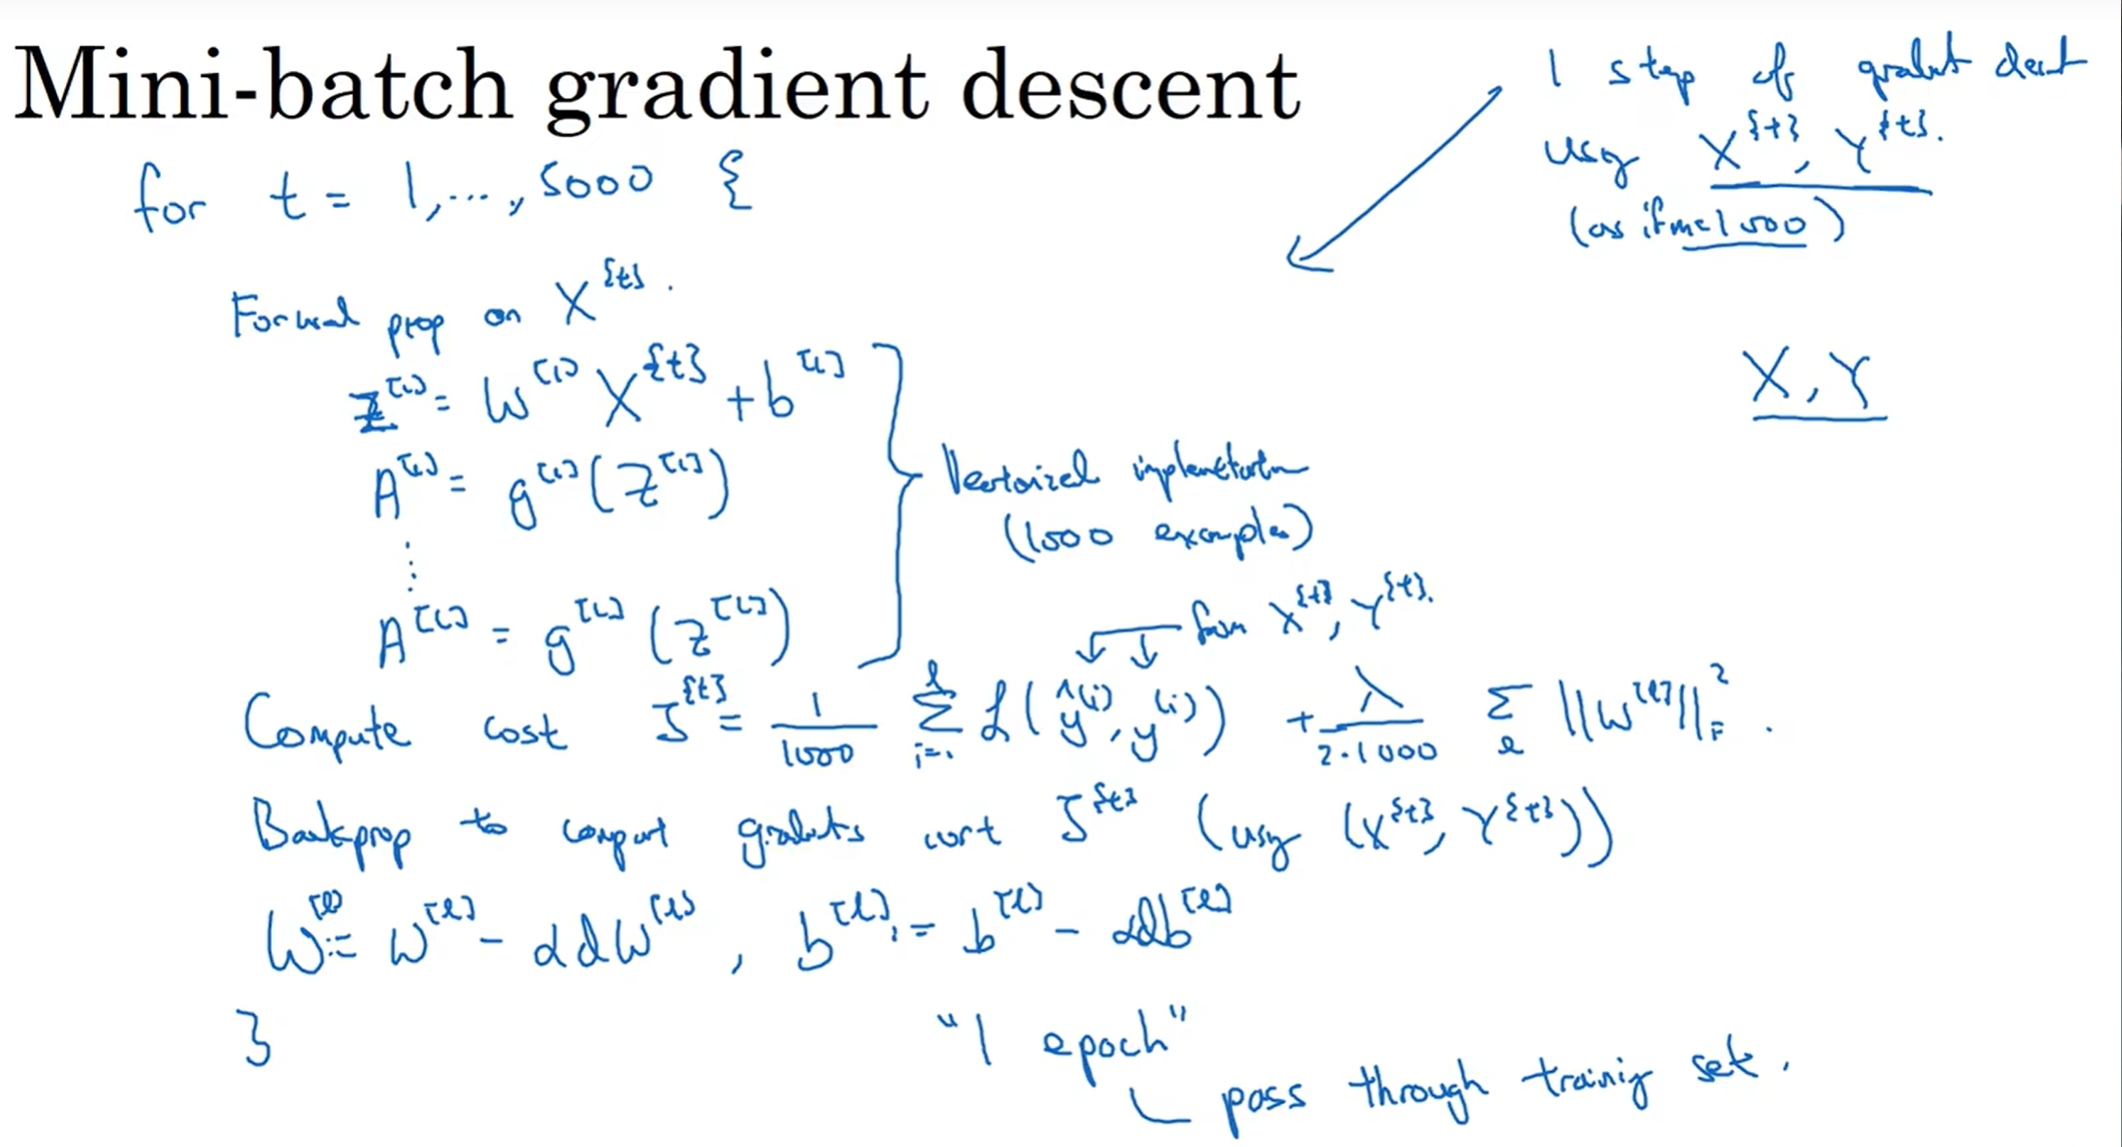 Mini-batch gradient descent
1 step of gradient descent
using X^{t}, Y^{t}.
(as if m=1000)
for t = 1,..., 5000 {
Forward prop on X^{t}.
X, Y
Z^[1] = W^[1] X^{t} + b^[1]
A^[1] = g^[1](Z^[1])
Vectorized implementation
(1000 examples)
⋮
A^[L] = g^[L](Z^[L])
from X^{t}, Y^{t}.
Compute cost J^{t} = 1/1000 Σ_{i=1}^{l} L(ŷ^(i), y^(i)) + λ/(2·1000) Σ_l ||W^[l]||_F^2.
Backprop to compute gradients wrt J^{t} (using (X^{t}, Y^{t}))
W^[l] := W^[l] - αdW^[l], b^[l] := b^[l] - αdb^[l]
}
"1 epoch"
pass through training set.